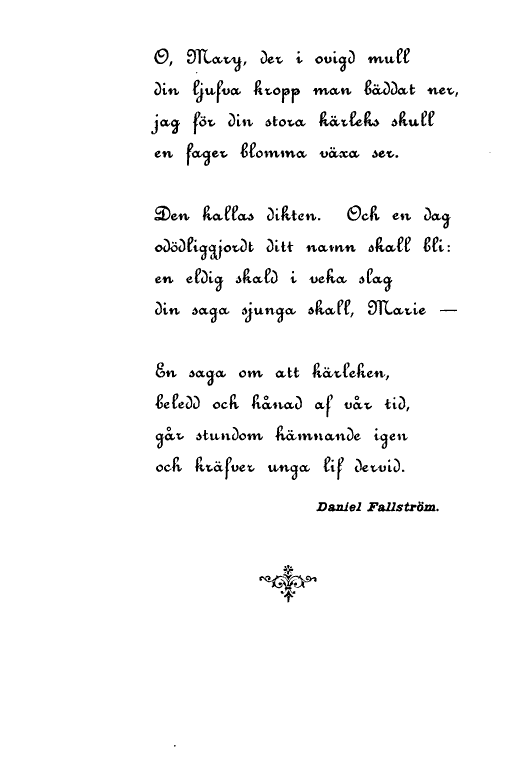 O, Mary, der i ovigd mull
din ljufva kropp man bäddat ner,
jag för din stora kärleks skull
en fager blomma växa ser.
Den kallas dikten. Och en dag
odödliggjordt ditt namn skall bli:
en eldig skald i veka slag
din saga sjunga skall, Marie —
En saga om att kärleken,
beledd och hånad af vår tid,
går stundom hämnande igen
och kräfver unga lif dervid.
Daniel Fallström.